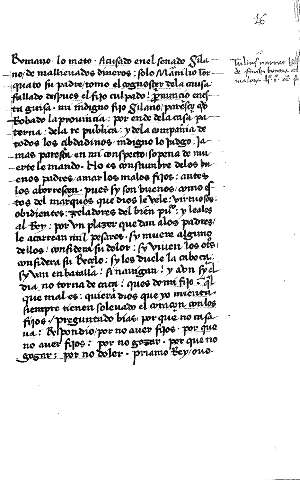 Romano lo mato. Acusado en el senado Sila
no de malleuados dineros: solo Manilio Tor
quato su padre tomo el cognoscer dela causa
fallado despues el fijo culpado pronuncio en es
ta guisa. mi indigno fijo Silano paresce que
robado la prouincia: por ende dela casa pa
terna: dela re publica: y dela compañia de
todos los cibdadinos indigno lo judgo. Ja
mas paresca en mi conspecto: so pena de mu
erte le mando. No es constumbre delos bu
enos padres amar los malos fijos: antes
los aborrescen. pues sy son buenos como es
tos del marques que dios le vele: virtuosos
obidientes: zeladores del bien pu.co: y leales
al Rey: por vn plazer que dan alos padres
le acarrean mil pesares. sy muere alguno
dellos: considera su dolor: sy viuen los otros
considera su recelo: sy les duele la cabeça
sy van en batalla: si nauigan: y aun sy el
dia no torna de caça: ques de mi fijo:
que mal es: quiera dios que yo mienta
siempre tienen soleuado el coraçon con los
fijos. preguntado bias: por que no casa
ua: Respondio por no auer fijos. por que
no auer fijos: por no gozar. por que no
gozar: por no dolor. priamo Rey ouo